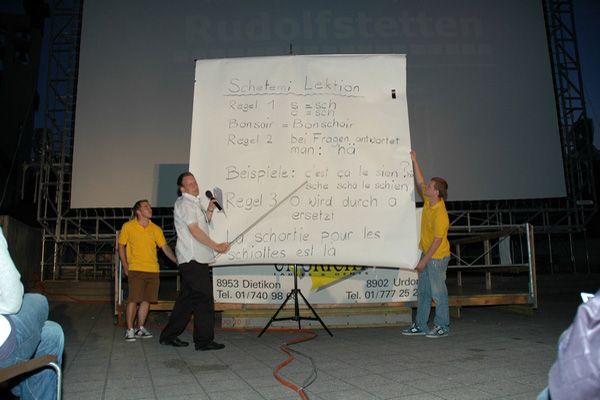 Rudolfstetten
Schötemi Lektion
Regel 1 s = sch
c = sch
Bonsoir = Bonschoir
Regel 2 bei Fragen antwortet
man: hä
Beispiele: c'est ça le sien?
sche scha le schien
Regel 3 O wird durch ö
ersetzt
La schortie pour les
schiottes est là
8953 Dietikon
Tel. 01/740 98
8902 Urdor
Tel. 01/777 25 2